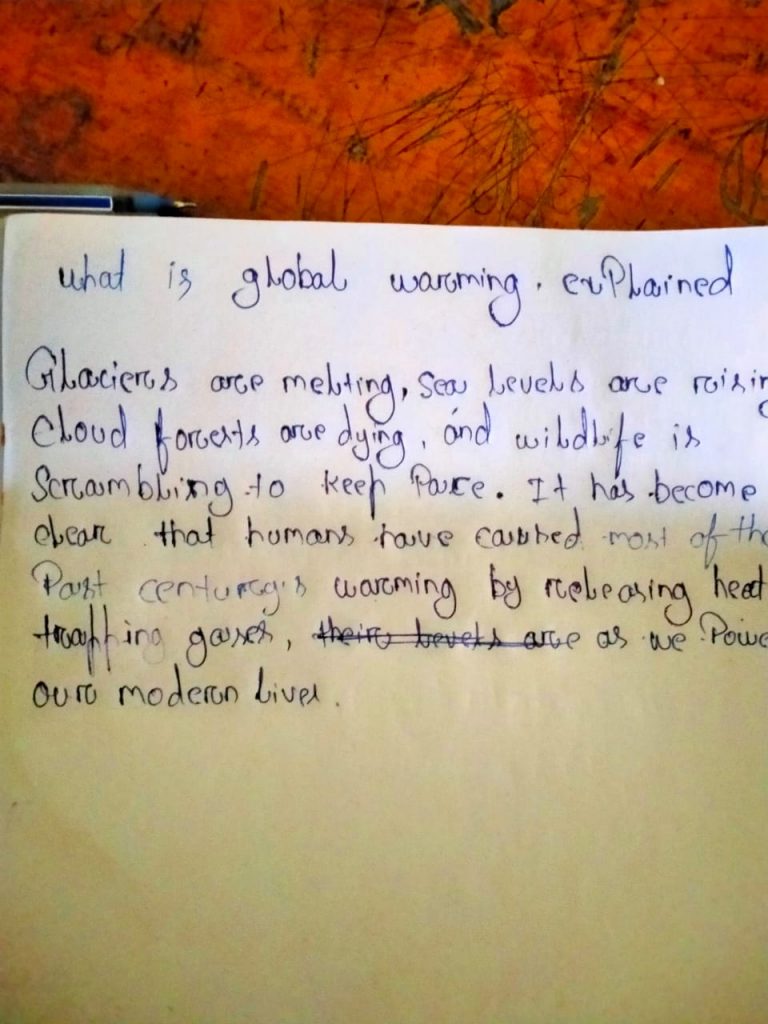 what is global warming. explained
Glaciers are melting, sea levels are raisin
cloud forests are dying, and wildlife is
scrambling to keep pace. It has become
clear that humans have caused most of the
Past century's warming by releasing heat
trapping gases, their levels are as we Powe
our modern lives.